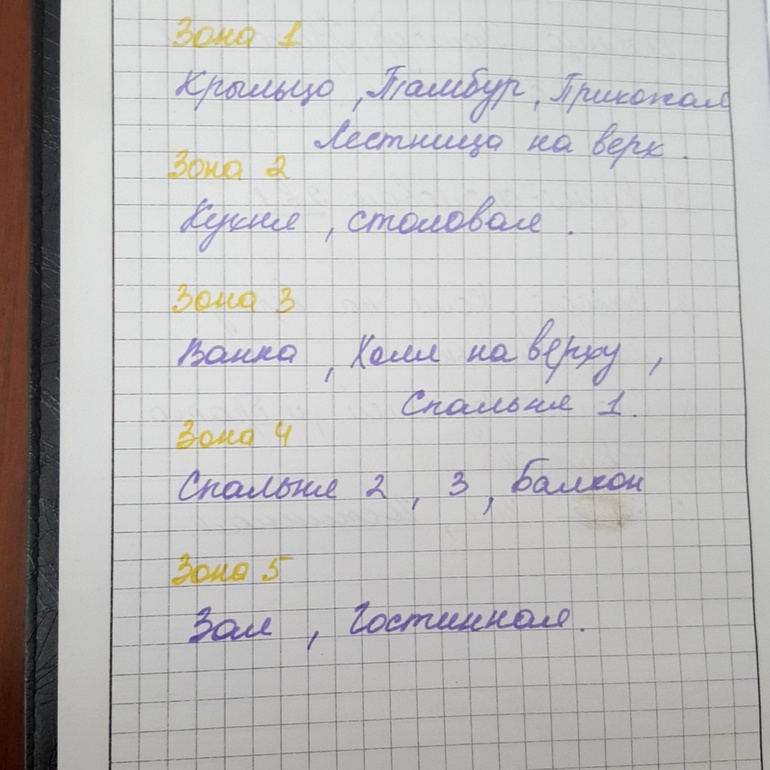 Зона 1
Крыльцо, Тамбур, Прихожая
Лестница на верх.
Зона 2
Кухня, столовая.
Зона 3
Ванна, Холл на верху,
Спальня 1.
Зона 4
Спальня 2, 3, Балкон
Зона 5
Зал, Гостинная.